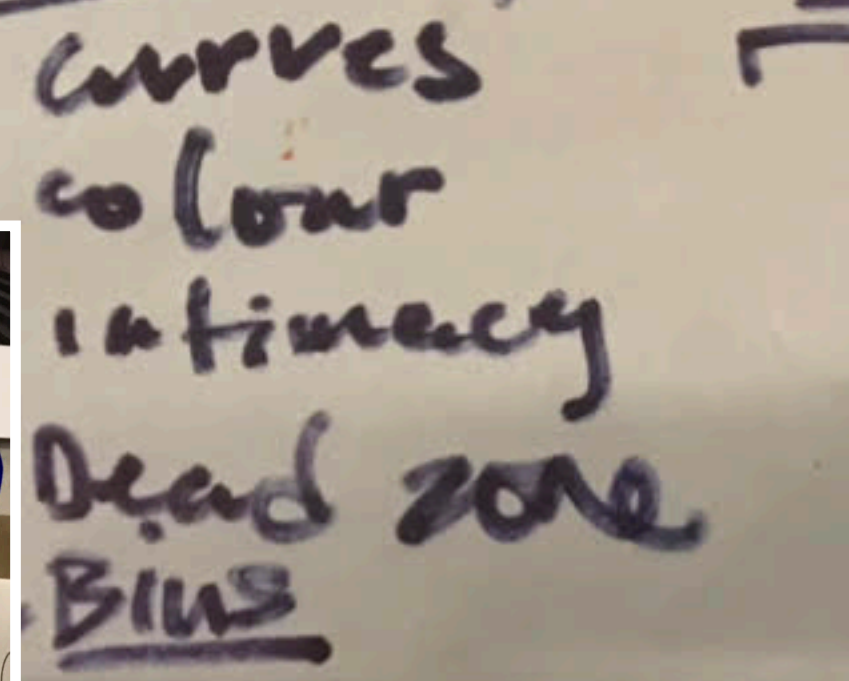 curves
colour
intimacy
Dead zone
Bins